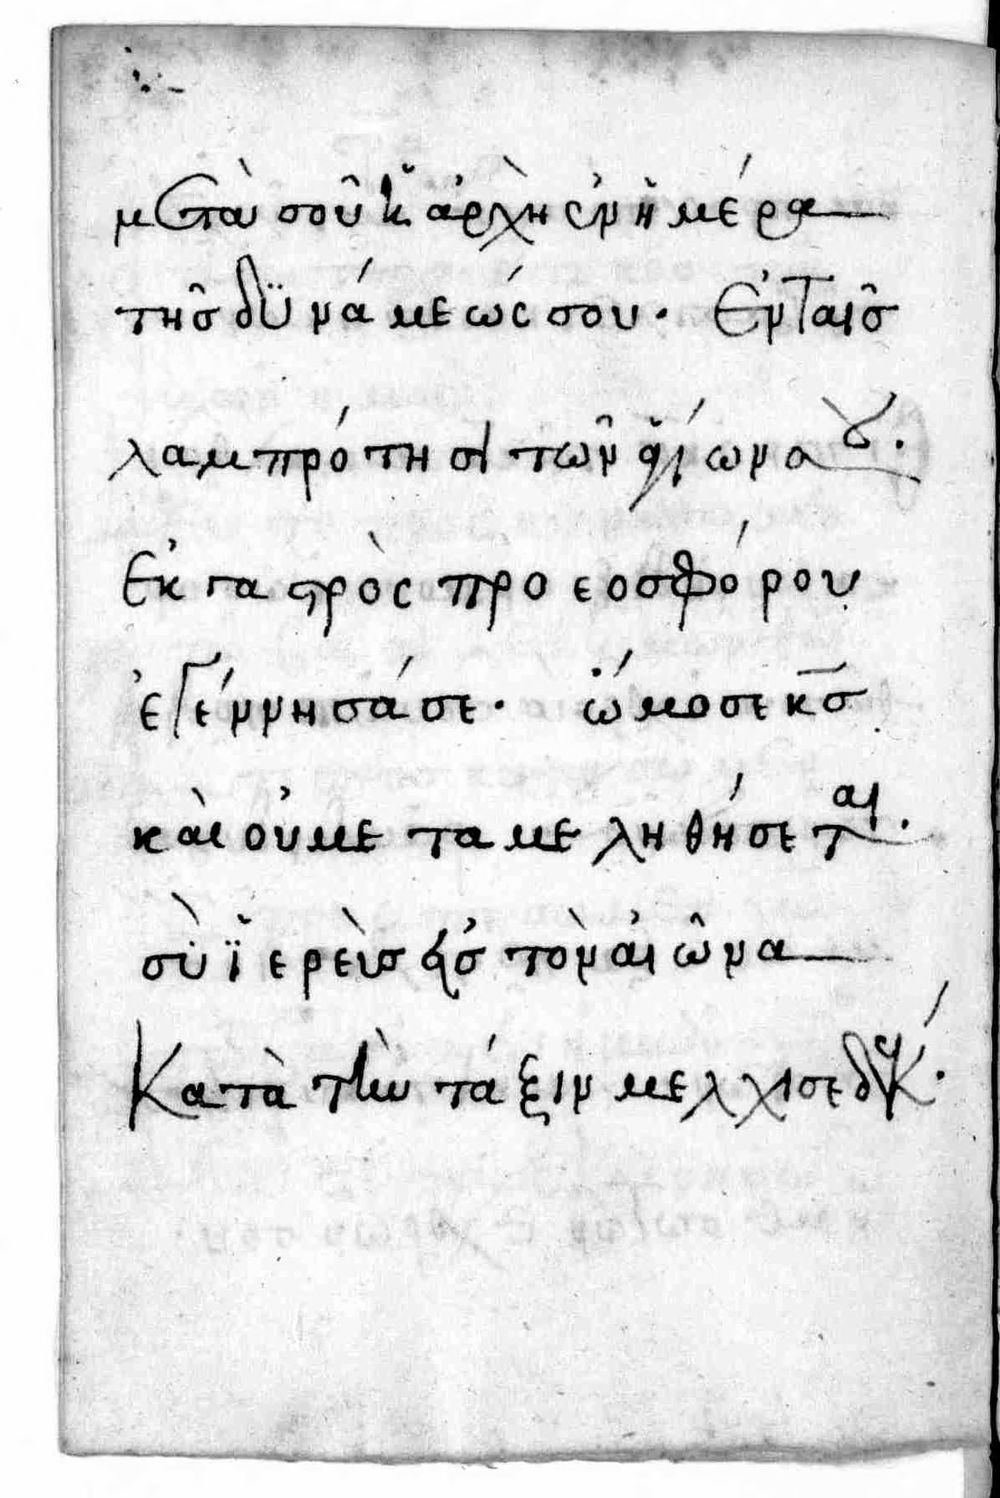 μετὰ σοῦ κ̀ ἀρχὴ ἐν ἡμέρα
τῆσ δϋνάμεώς σου. Ἐν ταῖσ
λαμπρότησι τῶν ἁγίων σου.
Ἐκ γαστρὸς προ εοσφόρου
ἐγέννησάσε. ὤμοσε κ̅σ̅
κὰι οὐ μεταμεληθήσεται.
σὺ ϊερεὺσ εἰσ τὸν αἰῶνα
Κατὰ τὴν τάξιν μελχισεδέκ.